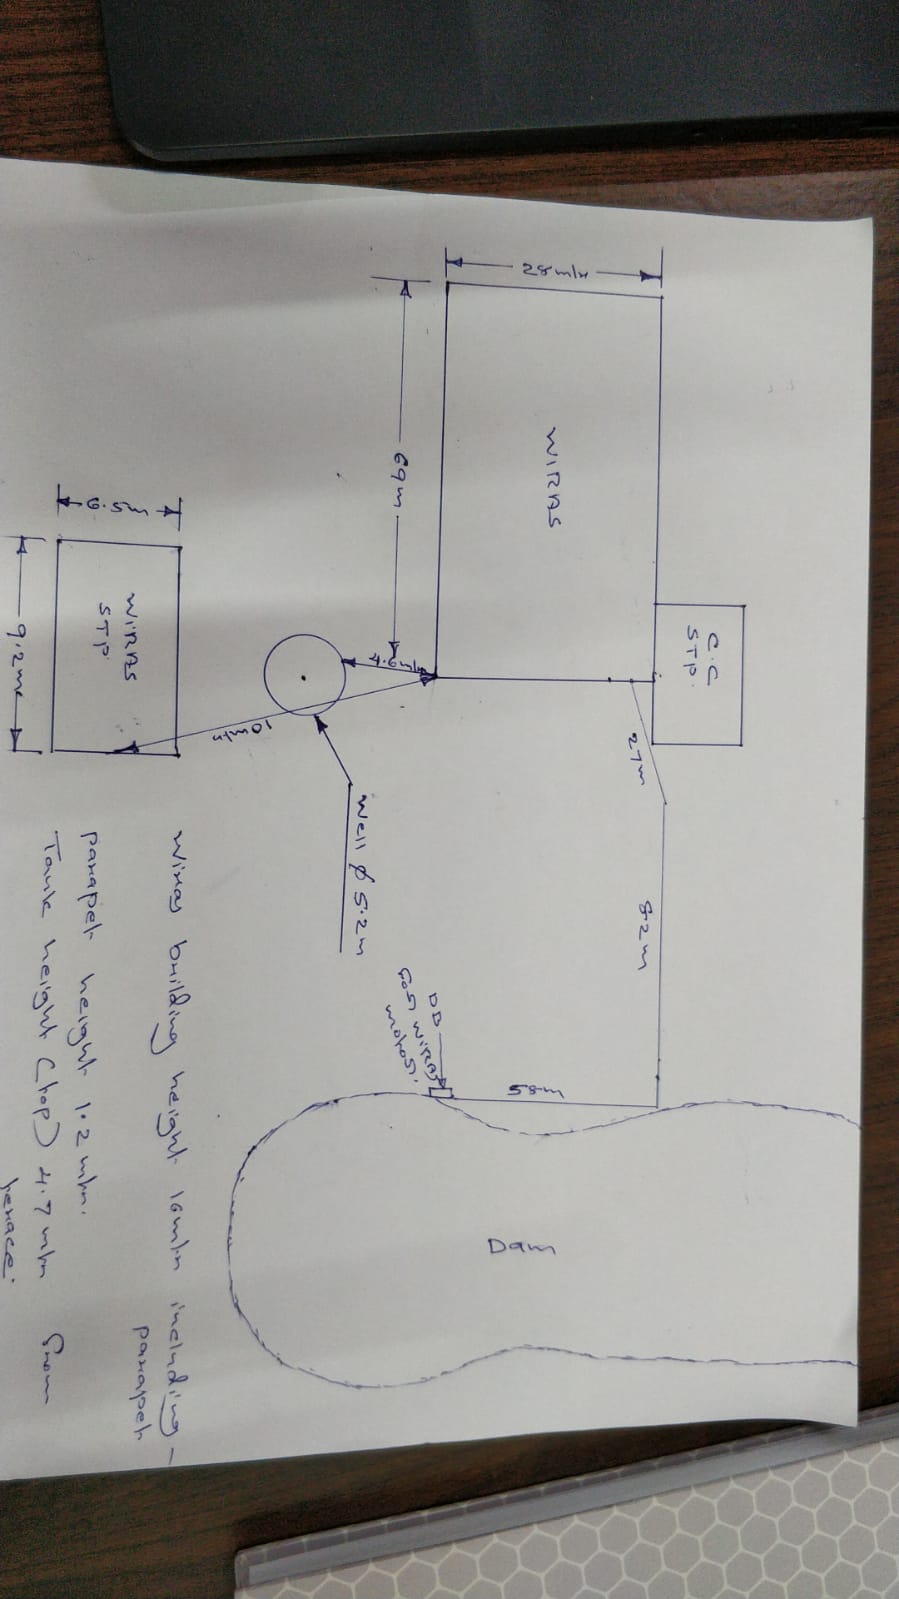 C.C
STP.
27m
82m
28mtr
WIRAS
58m
Dam
DB
For WIRAS
motor.
69m
4.6mtr
Well ϕ 5.2m
10mtr
WIRAS
STP
6.5m
9.2mt
Wiras building height 16mtr including
parapet
parapet height 1.2 mtr.
Tank height (top) 4.7 mtr from
terrace.